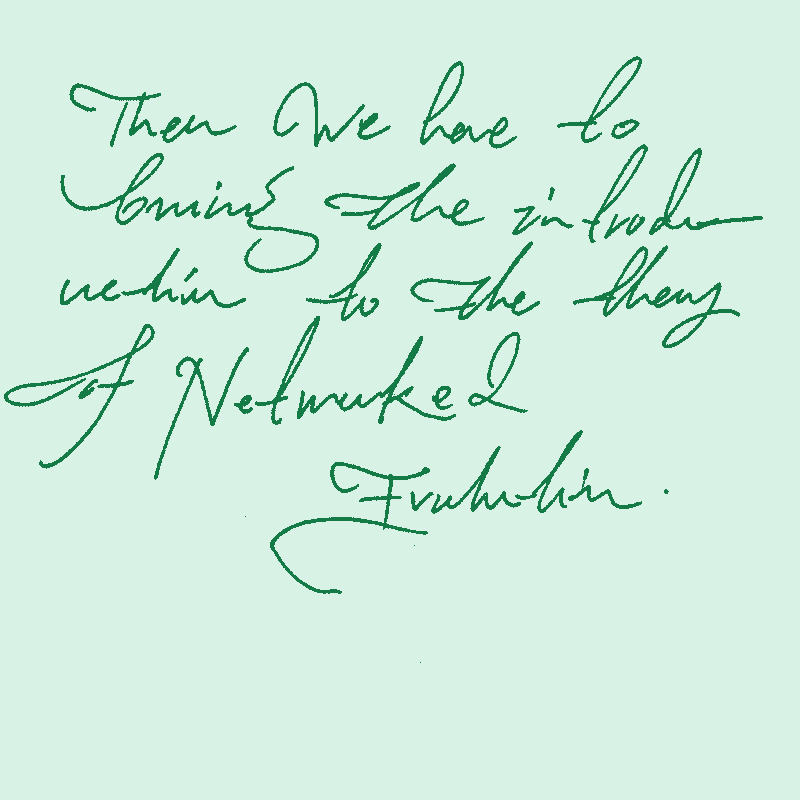 Then We have to
bring the introdu-
uction to the theory
of Networked
Evolution.